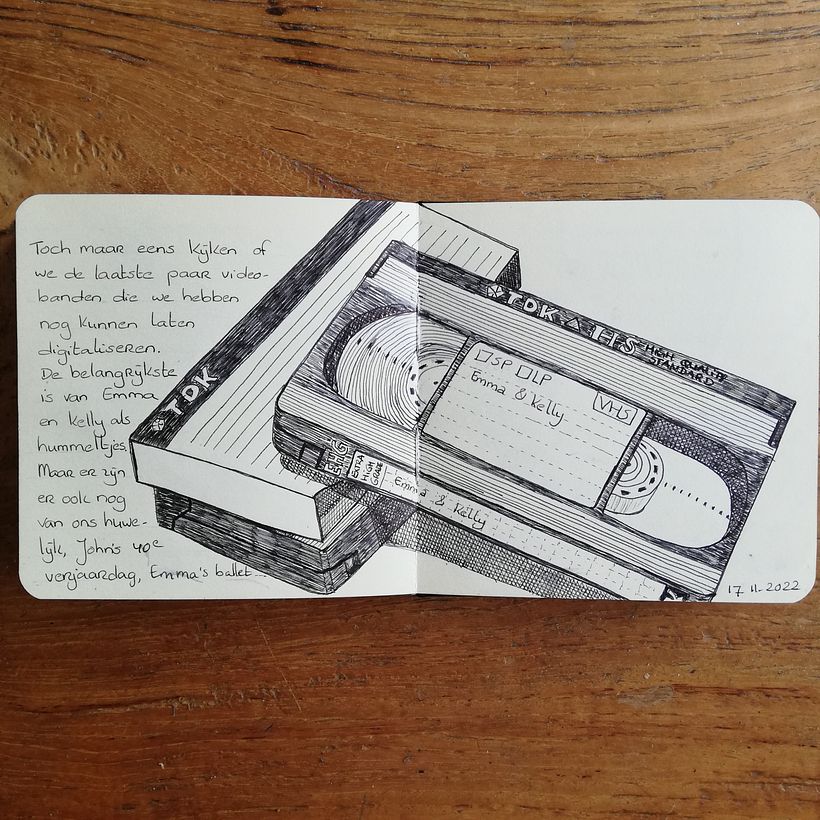 Toch maar eens kijken of
we de laatste paar video-
banden die we hebben
nog kunnen laten
digitaliseren.
De belangrijkste
is van Emma
en Kelly als
hummeltjes.
Maar er zijn
er ook nog
van ons huwe-
lijk, John's 40e
verjaardag, Emma's ballet...
TDK
TDK HS HIGH QUALITY
STANDARD
SP LP
VHS
Emma & Kelly
EXTRA
HIGH
GRADE
Emma & Kelly
17-11-2022